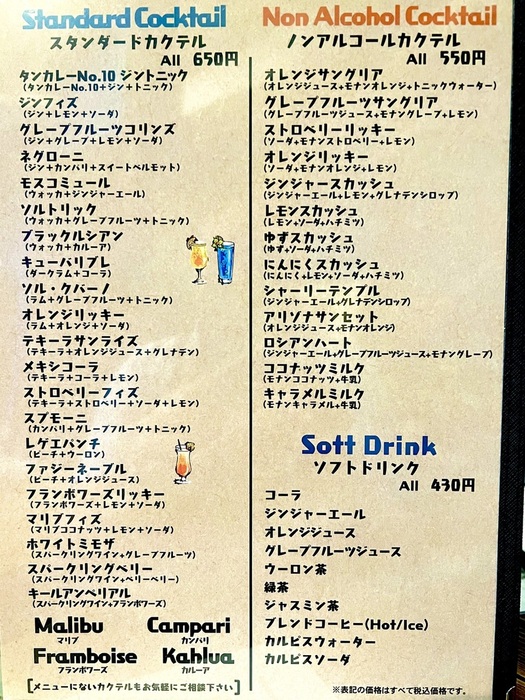 Standard Cocktail
スタンダードカクテル
All 650円
タンカレーNo.10 ジントニック
(タンカレーNo.10+ジン+トニック)
ジンフィズ
(ジン+レモン+ソーダ)
グレープフルーツコリンズ
(ジン+グレープ+レモン+ソーダ)
ネグローニ
(ジン+カンパリ+スイートベルモット)
モスコミュール
(ウォッカ+ジンジャーエール)
ソルトリック
(ウォッカ+グレープフルーツ+トニック)
ブラックルシアン
(ウォッカ+カルーア)
キューバリブレ
(ダークラム+コーラ)
ソル・クバーノ
(ラム+グレープフルーツ+トニック)
オレンジリッキー
(ラム+オレンジ+ソーダ)
テキーラサンライズ
(テキーラ+オレンジジュース+グレナデン)
メキシコーラ
(テキーラ+コーラ+レモン)
ストロベリーフィズ
(テキーラ+ストロベリー+ソーダ+レモン)
スプモーニ
(カンパリ+グレープフルーツ+トニック)
レゲエパンチ
(ピーチ+ウーロン)
ファジーネーブル
(ピーチ+オレンジジュース)
フランボワーズリッキー
(フランボワーズ+レモン+ソーダ)
マリブフィズ
(マリブココナッツ+レモン+ソーダ)
ホワイトミモザ
(スパークリングワイン+グレープフルーツ)
スパークリングベリー
(スパークリングワイン+ベリーベリー)
キールアンペリアル
(スパークリングワイン+フランボワーズ)
Malibu Campari
マリブ カンパリ
Framboise Kahlua
フランボワーズ カルーア
[メニューにないカクテルもお気軽にご相談下さい]
Non Alcohol Cocktail
ノンアルコールカクテル
All 550円
オレンジサングリア
(オレンジジュース+モナンオレンジ+トニックウォーター)
グレープフルーツサングリア
(グレープフルーツジュース+モナングレープ+レモン)
ストロベリーリッキー
(ソーダ+モナンストロベリー+レモン)
オレンジリッキー
(ソーダ+モナンオレンジ+レモン)
ジンジャースカッシュ
(ジンジャーエール+レモン+グレナデンシロップ)
レモンスカッシュ
(レモン+ソーダ+ハチミツ)
ゆずスカッシュ
(ゆず+ソーダ+ハチミツ)
にんにくスカッシュ
(にんにく+レモン+ソーダ+ハチミツ)
シャーリーテンプル
(ジンジャーエール+グレナデンシロップ)
アリゾナサンセット
(オレンジジュース+モナンオレンジ)
ロシアンハート
(ジンジャーエール+グレープフルーツジュース+モナングレープ)
ココナッツミルク
(モナンココナッツ+牛乳)
キャラメルミルク
(モナンキャラメル+牛乳)
Soft Drink
ソフトドリンク
All 430円
コーラ
ジンジャーエール
オレンジジュース
グレープフルーツジュース
ウーロン茶
緑茶
ジャスミン茶
ブレンドコーヒー(Hot/Ice)
カルピスウォーター
カルピスソーダ
※表記の価格はすべて税込価格です。